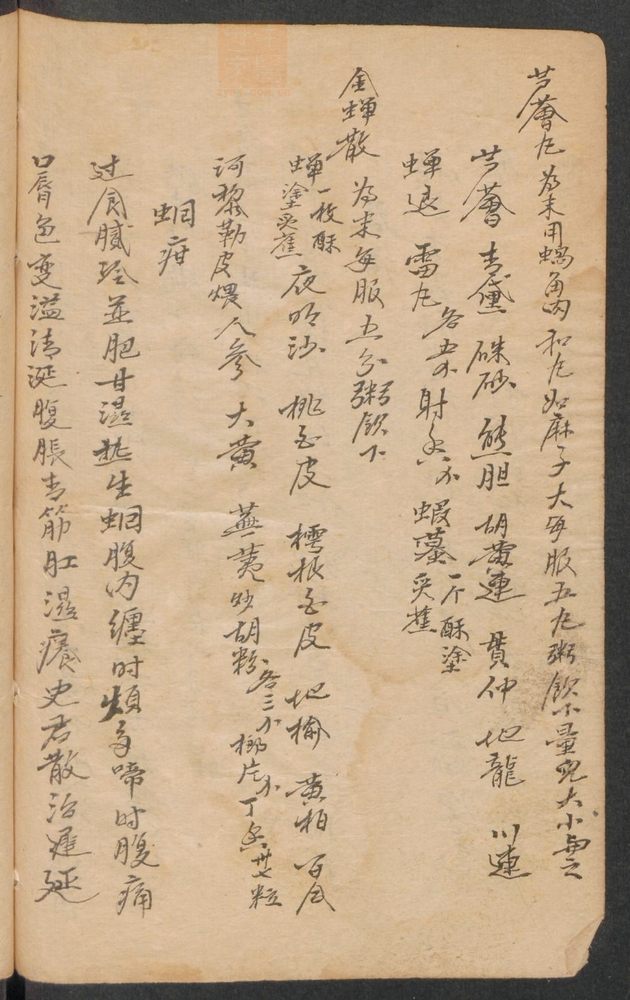 芦薈丸 为末用蝸角肉和丸如麻子大每服五丸粥飲下量兒大小與之
芦薈 青黛 硃砂 熊胆 胡黄連 貫仲 地龍 川連
蟬退 雷丸各五分 射香一分 蝦蟇一个酥塗炙蕉
金蟬散 为末每服五分粥飲下
蟬一枚酥塗炙蕉 夜明沙 桃白皮 樗根白皮 地榆 黄柏 百合
訶黎勒皮煨 人參 大黄 蕪荑炒 胡粉各三分 榔片一分 丁香廿七粒
蛔疳
过食膩冷並肥甘濕热生蛔腹内纏时煩多啼时腹痛
口唇色变溢清涎腹脹青筋肛濕癢史君散治遲延